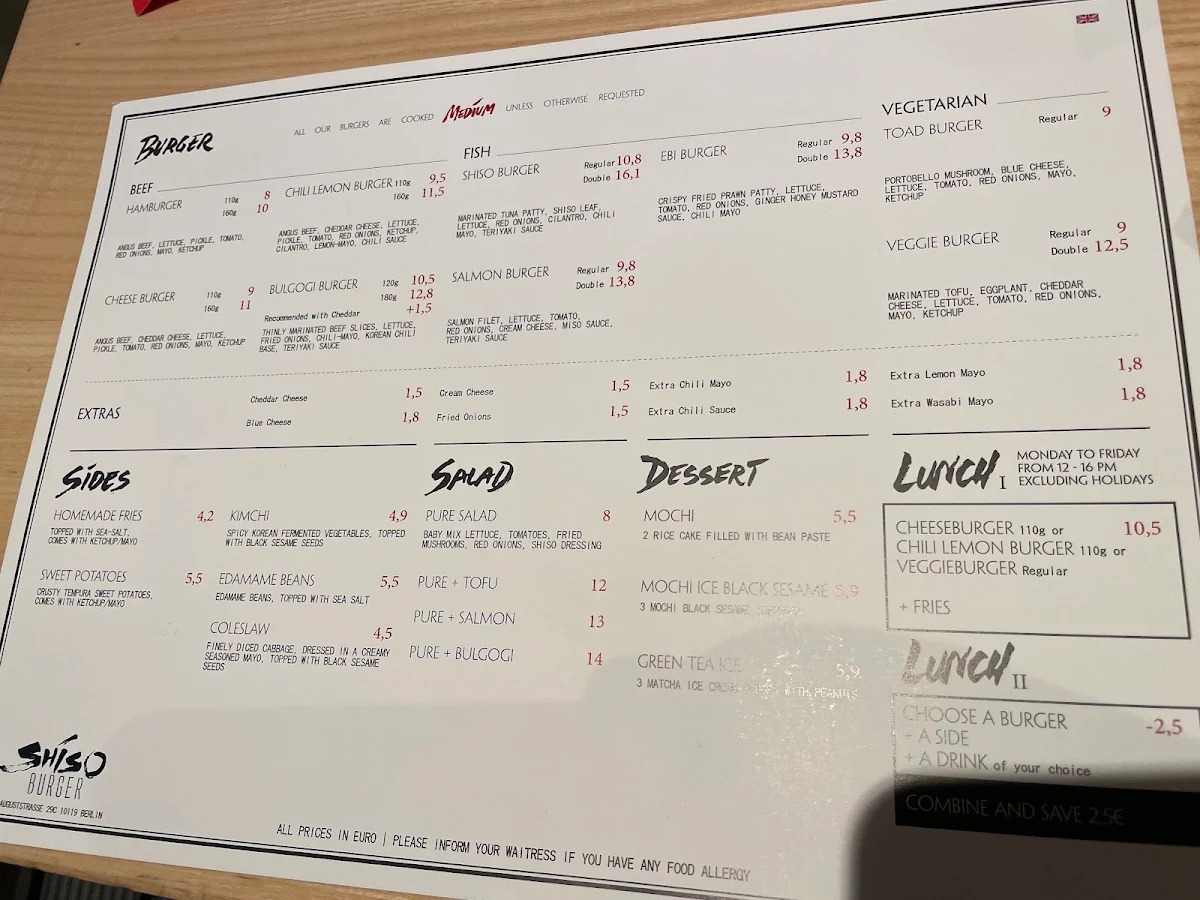 BURGER
ALL OUR BURGERS ARE COOKED MEDIUM UNLESS OTHERWISE REQUESTED
BEEF
HAMBURGER 110g 8
160g 10
ANGUS BEEF, LETTUCE, PICKLE, TOMATO,
RED ONIONS, MAYO, KETCHUP
CHEESE BURGER 110g 9
160g 11
ANGUS BEEF, CHEDDAR CHEESE, LETTUCE,
PICKLE, TOMATO, RED ONIONS, MAYO, KETCHUP
CHILI LEMON BURGER 110g 9,5
160g 11,5
ANGUS BEEF, CHEDDAR CHEESE, LETTUCE,
PICKLE, TOMATO, RED ONIONS, KETCHUP,
CILANTRO, LEMON-MAYO, CHILI SAUCE
BULGOGI BURGER 120g 10,5
180g 12,8
Recommended with Cheddar +1,5
THINLY MARINATED BEEF SLICES, LETTUCE,
FRIED ONIONS, CHILI-MAYO, KOREAN CHILI
BASE, TERIYAKI SAUCE
FISH
SHISO BURGER Regular 10,8
Double 16,1
MARINATED TUNA PATTY, SHISO LEAF,
LETTUCE, RED ONIONS, CILANTRO, CHILI
MAYO, TERIYAKI SAUCE
SALMON BURGER Regular 9,8
Double 13,8
SALMON FILET, LETTUCE, TOMATO,
RED ONIONS, CREAM CHEESE, MISO SAUCE,
TERIYAKI SAUCE
EBI BURGER Regular 9,8
Double 13,8
CRISPY FRIED PRAWN PATTY, LETTUCE,
TOMATO, RED ONIONS, GINGER HONEY MUSTARD
SAUCE, CHILI MAYO
VEGETARIAN
TOAD BURGER Regular 9
PORTOBELLO MUSHROOM, BLUE CHEESE,
LETTUCE, TOMATO, RED ONIONS, MAYO,
KETCHUP
VEGGIE BURGER Regular 9
Double 12,5
MARINATED TOFU, EGGPLANT, CHEDDAR
CHEESE, LETTUCE, TOMATO, RED ONIONS,
MAYO, KETCHUP
EXTRAS
Cheddar Cheese 1,5
Blue Cheese 1,8
Cream Cheese 1,5
Fried Onions 1,5
Extra Chili Mayo 1,8
Extra Chili Sauce 1,8
Extra Lemon Mayo 1,8
Extra Wasabi Mayo 1,8
SIDES
HOMEMADE FRIES 4,2
TOPPED WITH SEA-SALT,
COMES WITH KETCHUP/MAYO
SWEET POTATOES 5,5
CRUSTY TEMPURA SWEET POTATOES,
COMES WITH KETCHUP/MAYO
KIMCHI 4,9
SPICY KOREAN FERMENTED VEGETABLES, TOPPED
WITH BLACK SESAME SEEDS
EDAMAME BEANS 5,5
EDAMAME BEANS, TOPPED WITH SEA SALT
COLESLAW 4,5
FINELY DICED CABBAGE, DRESSED IN A CREAMY
SEASONED MAYO, TOPPED WITH BLACK SESAME
SEEDS
SALAD
PURE SALAD 8
BABY MIX LETTUCE, TOMATOES, FRIED
MUSHROOMS, RED ONIONS, SHISO DRESSING
PURE + TOFU 12
PURE + SALMON 13
PURE + BULGOGI 14
DESSERT
MOCHI 5,5
2 RICE CAKE FILLED WITH BEAN PASTE
MOCHI ICE BLACK SESAME 5,9
3 MOCHI BLACK SESAME
GREEN TEA ICE 5,9
3 MATCHA ICE CREAM WITH PEANUTS
LUNCH I
MONDAY TO FRIDAY
FROM 12 - 16 PM
EXCLUDING HOLIDAYS
CHEESEBURGER 110g or 10,5
CHILI LEMON BURGER 110g or
VEGGIEBURGER Regular
+ FRIES
LUNCH II
CHOOSE A BURGER -2,5
+ A SIDE
+ A DRINK of your choice
COMBINE AND SAVE 2.5€
SHISO
BURGER
AUGUSTSTRASSE 29C 10119 BERLIN
ALL PRICES IN EURO | PLEASE INFORM YOUR WAITRESS IF YOU HAVE ANY FOOD ALLERGY